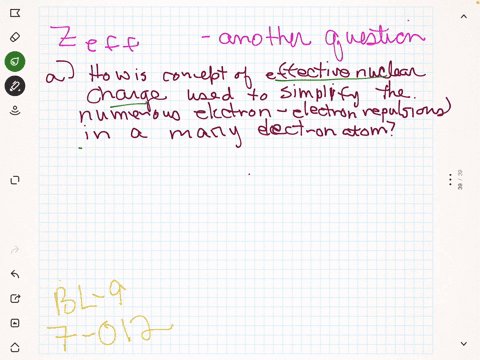 Zeff - another question
a) How is concept of effective nuclear
charge used to simplify the
numerous electron-electron repulsions
in a many electron atom?
BL-9
7-012